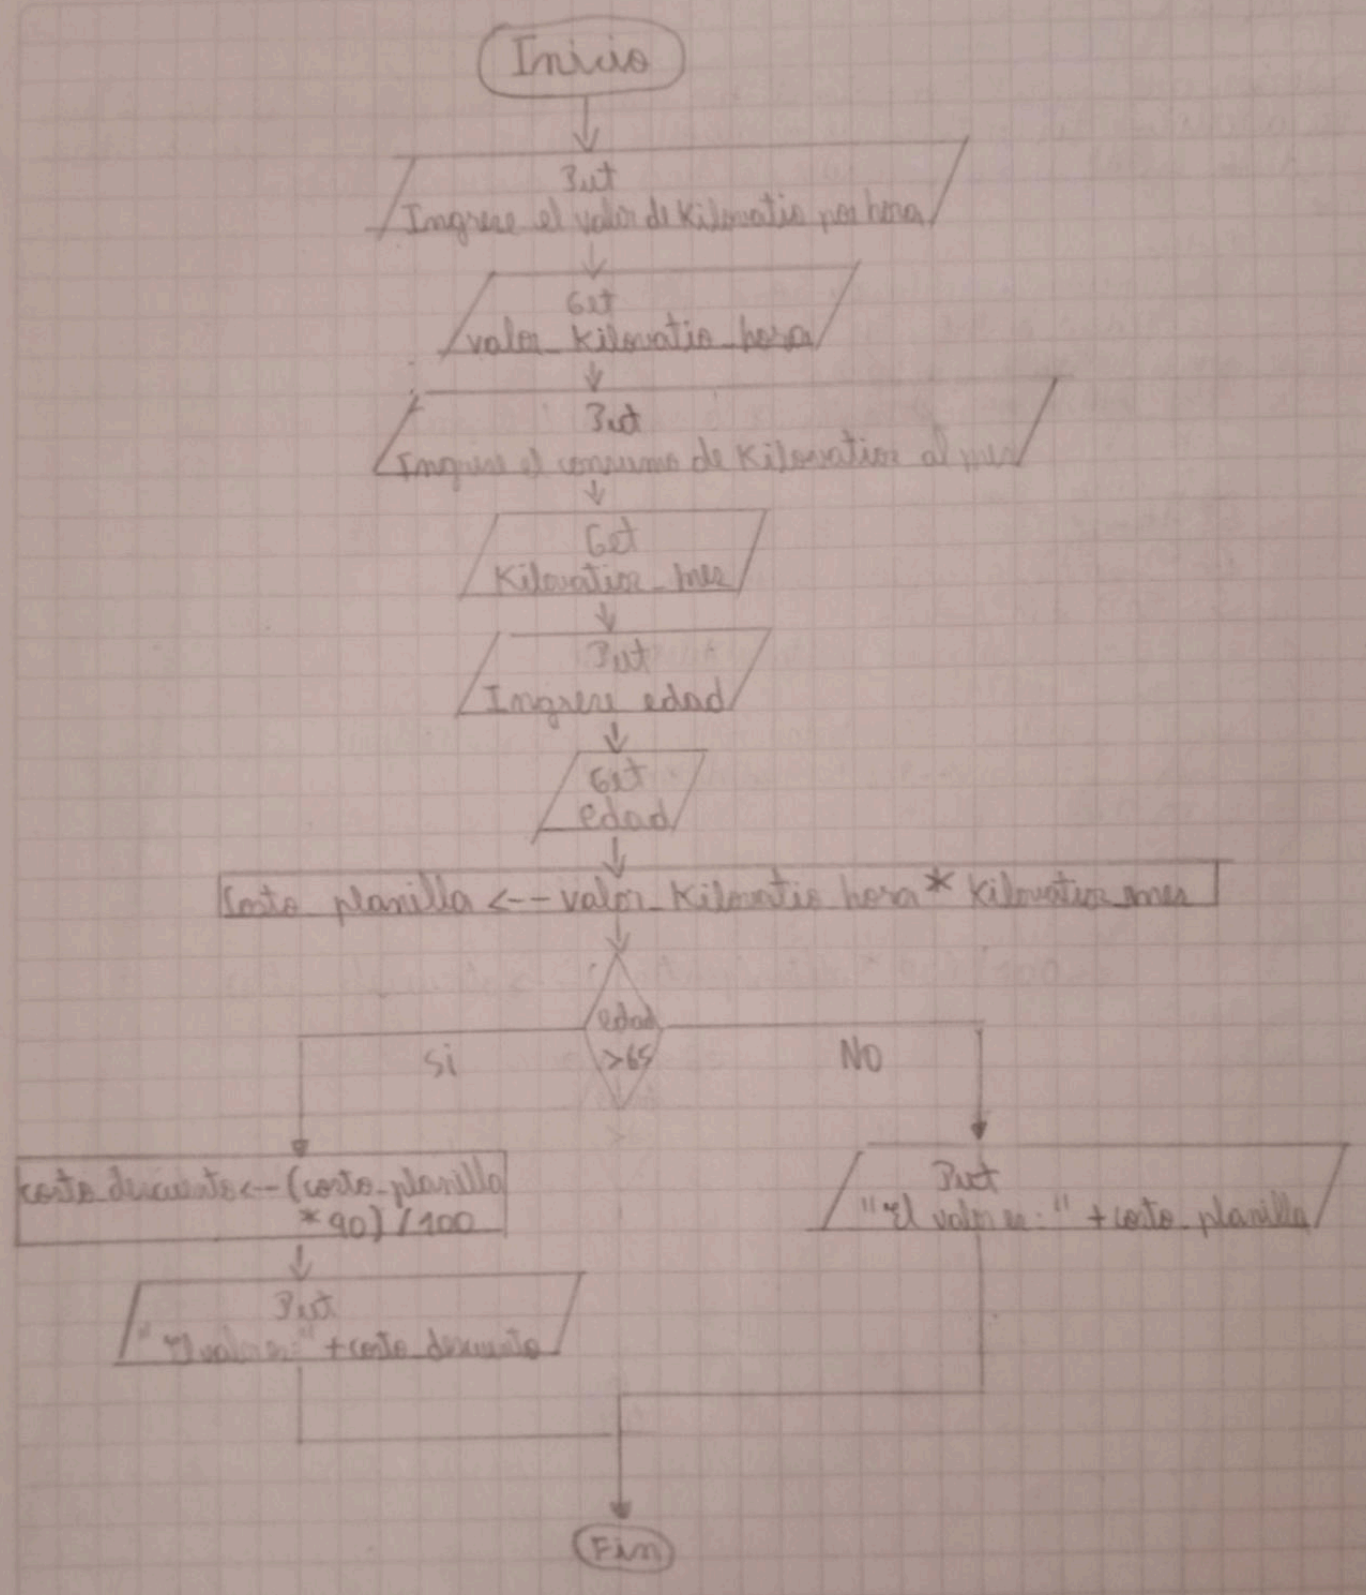 Inicio
Put
Ingrese el valor de Kilovatio por hora
Get
valor_Kilovatio_hora
Put
Ingrese el consumo de Kilovatios al mes
Get
Kilovatios_mes
Put
Ingrese edad
Get
edad
Costo_planilla <-- valor_Kilovatio_hora * Kilovatios_mes
edad
>65
Si
NO
costo_descuento <-- (costo_planilla
* 90) / 100
Put
"El valor es:" + costo_planilla
Put
"El valor es:" + costo_descuento
Fin